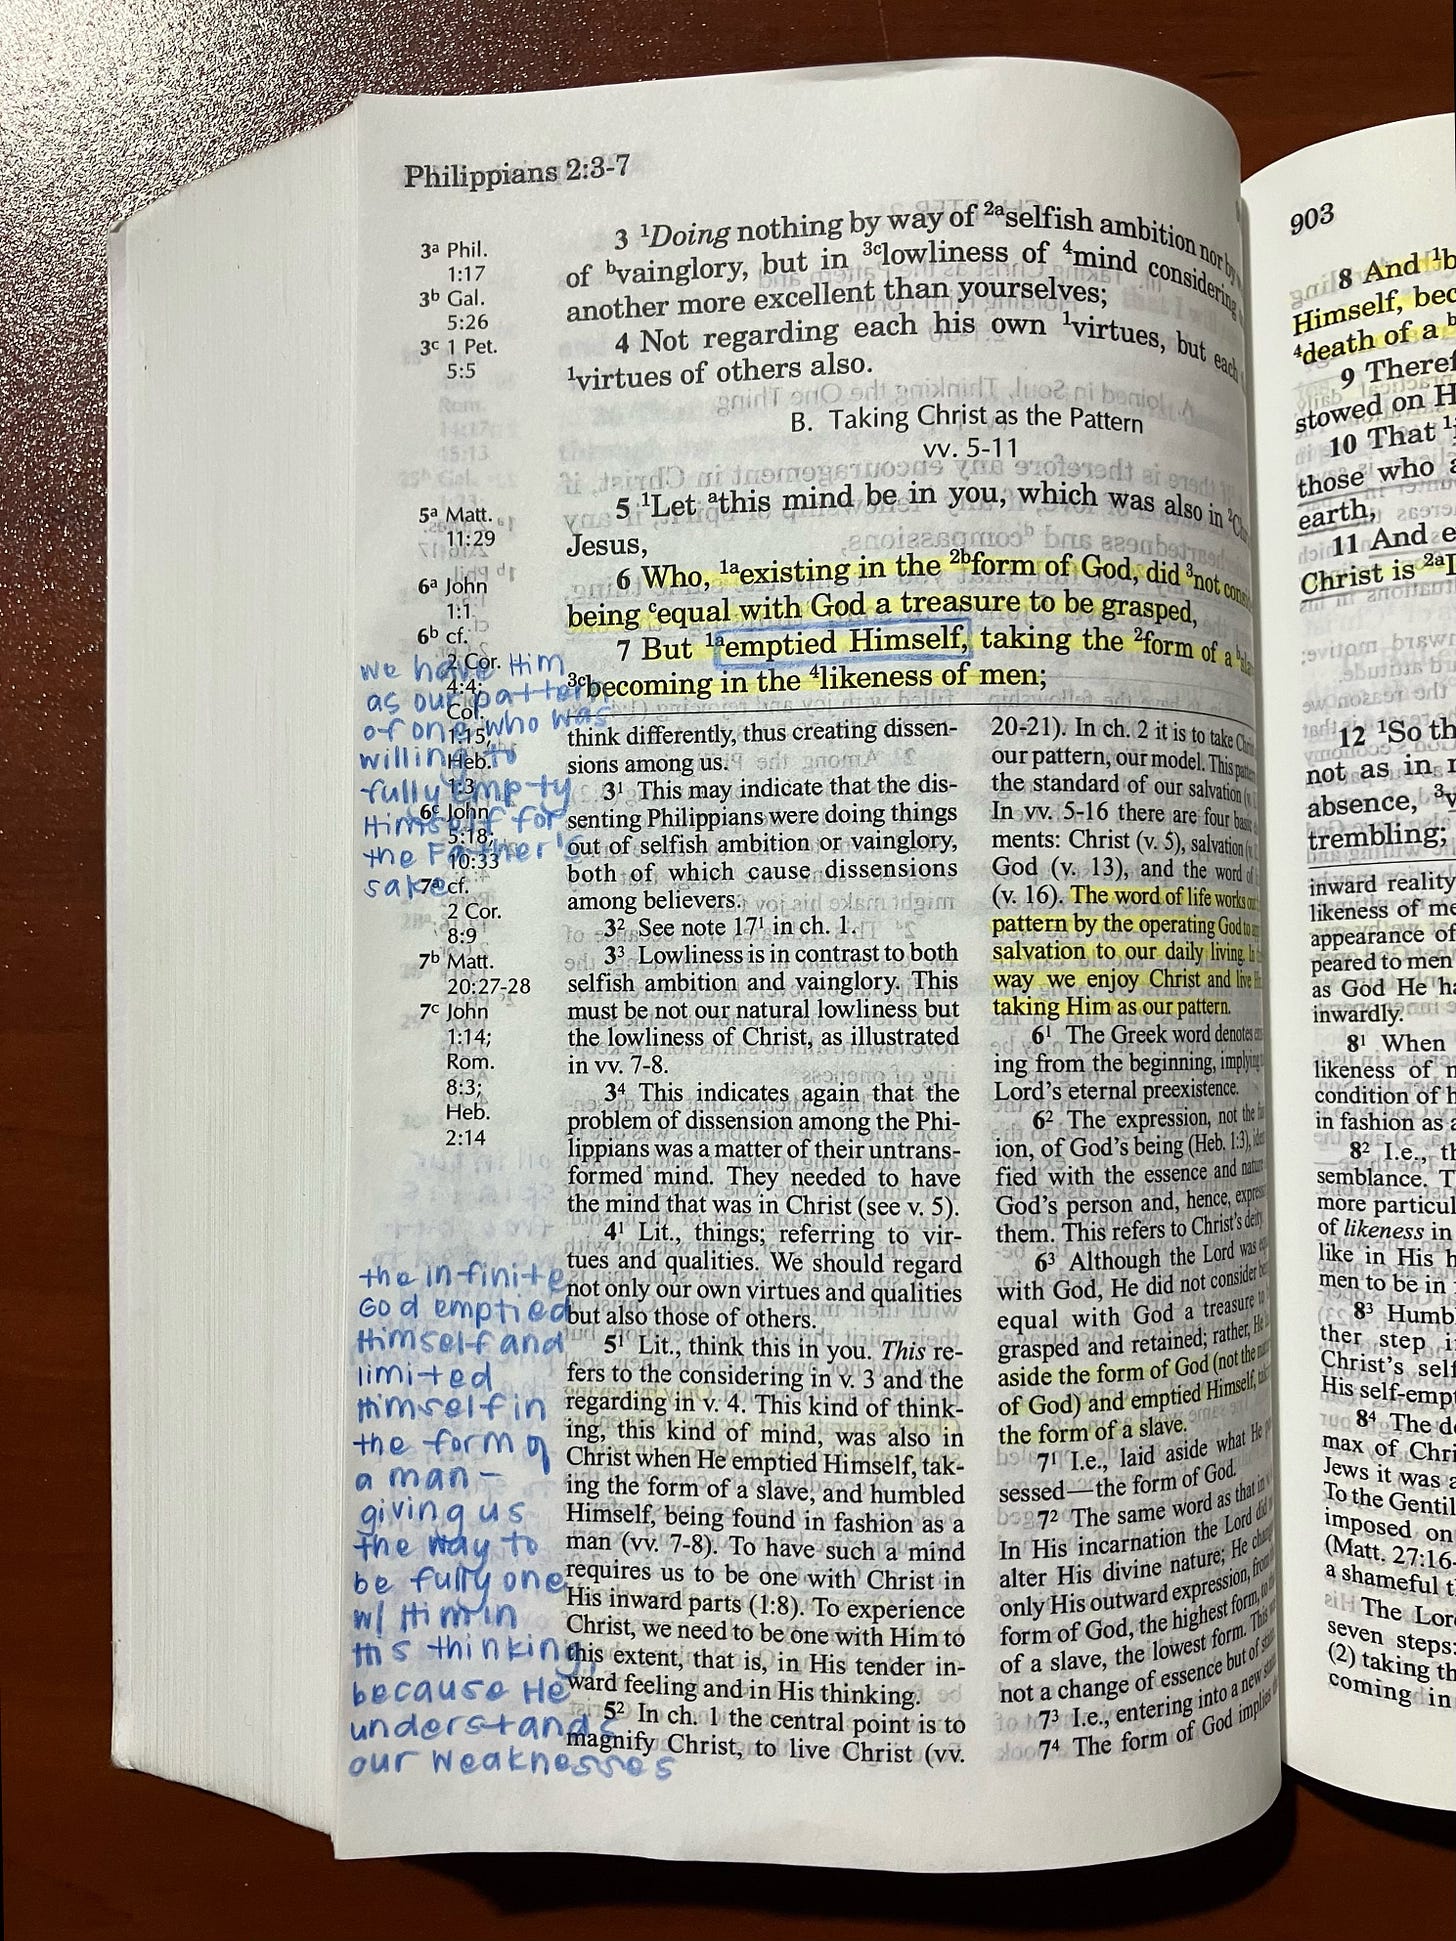 Philippians 2:3-7
3ᵃ Phil.
1:17
3ᵇ Gal.
5:26
3ᶜ 1 Pet.
5:5
5ᵃ Matt.
11:29
6ᵃ John
1:1
6ᵇ cf.
2 Cor.
4:4;
Col.
1:15;
Heb.
1:3
6ᶜ John
5:18;
10:33
7ᵃ cf.
2 Cor.
8:9
7ᵇ Matt.
20:27-28
7ᶜ John
1:14;
Rom.
8:3;
Heb.
2:14
we have Him
as our pattern
of one who was
willing to
fully empty
Himself for
the Father's
sake
the infinite
God emptied
Himself and
limited
Himself in
the form of
a man -
giving us
the way to
be fully one
w/ Him in
His thinking,
because He
understands
our weaknesses
3 ¹Doing nothing by way of ²ᵃselfish ambition nor by
of ᵇvainglory, but in ³ᶜlowliness of ⁴mind considering
another more excellent than yourselves;
4 Not regarding each his own ¹virtues, but each
¹virtues of others also.
B. Taking Christ as the Pattern
vv. 5-11
5 ¹Let ᵃthis mind be in you, which was also in
Jesus,
6 Who, ¹ᵃexisting in the ²ᵇform of God, did ³not
being ᶜequal with God a treasure to be grasped,
7 But ¹ᵃemptied Himself, taking the ²form of a
³ᶜbecoming in the ⁴likeness of men;
think differently, thus creating dissen-
sions among us.
3¹ This may indicate that the dis-
senting Philippians were doing things
out of selfish ambition or vainglory,
both of which cause dissensions
among believers.
3² See note 17¹ in ch. 1.
3³ Lowliness is in contrast to both
selfish ambition and vainglory. This
must be not our natural lowliness but
the lowliness of Christ, as illustrated
in vv. 7-8.
3⁴ This indicates again that the
problem of dissension among the Phi-
lippians was a matter of their untrans-
formed mind. They needed to have
the mind that was in Christ (see v. 5).
4¹ Lit., things; referring to vir-
tues and qualities. We should regard
not only our own virtues and qualities
but also those of others.
5¹ Lit., think this in you. This re-
fers to the considering in v. 3 and the
regarding in v. 4. This kind of think-
ing, this kind of mind, was also in
Christ when He emptied Himself, tak-
ing the form of a slave, and humbled
Himself, being found in fashion as a
man (vv. 7-8). To have such a mind
requires us to be one with Christ in
His inward parts (1:8). To experience
Christ, we need to be one with Him to
this extent, that is, in His tender in-
ward feeling and in His thinking.
5² In ch. 1 the central point is to
magnify Christ, to live Christ (vv.
20-21). In ch. 2 it is to take
our pattern, our model. This
the standard of our salvation
In vv. 5-16 there are four
ments: Christ (v. 5), salvation
God (v. 13), and the word of
(v. 16). The word of life works
pattern by the operating God to
salvation to our daily living. In
way we enjoy Christ and live
taking Him as our pattern.
6¹ The Greek word denotes
ing from the beginning, implying
Lord's eternal preexistence.
6² The expression, not the
ion, of God's being (Heb. 1:3),
fied with the essence and nature
God's person and, hence,
them. This refers to Christ's deity
6³ Although the Lord was
with God, He did not consider
equal with God a treasure to
grasped and retained; rather, He
aside the form of God (not the
of God) and emptied Himself,
the form of a slave.
7¹ I.e., laid aside what He
sessed—the form of God.
7² The same word as that in
In His incarnation the Lord did
alter His divine nature; He
only His outward expression,
form of God, the highest form, to
of a slave, the lowest form. This
not a change of essence but of
7³ I.e., entering into a new
7⁴ The form of God implies
903
8 And
Himself,
⁴death of a
9
stowed on
10 That
those who
earth,
11 And
Christ is
12 ¹So
not as in
absence,
trembling;
inward reality
likeness of
appearance of
peared to men
as God He
inwardly.
8¹ When
likeness of
condition of
in fashion as
8² I.e.,
semblance.
more
of likeness in
like in His
men to be in
8³
ther step
Christ's
His
8⁴ The
max of
Jews it was
To the
imposed on
(Matt.
a shameful
The
seven steps:
(2) taking
coming in